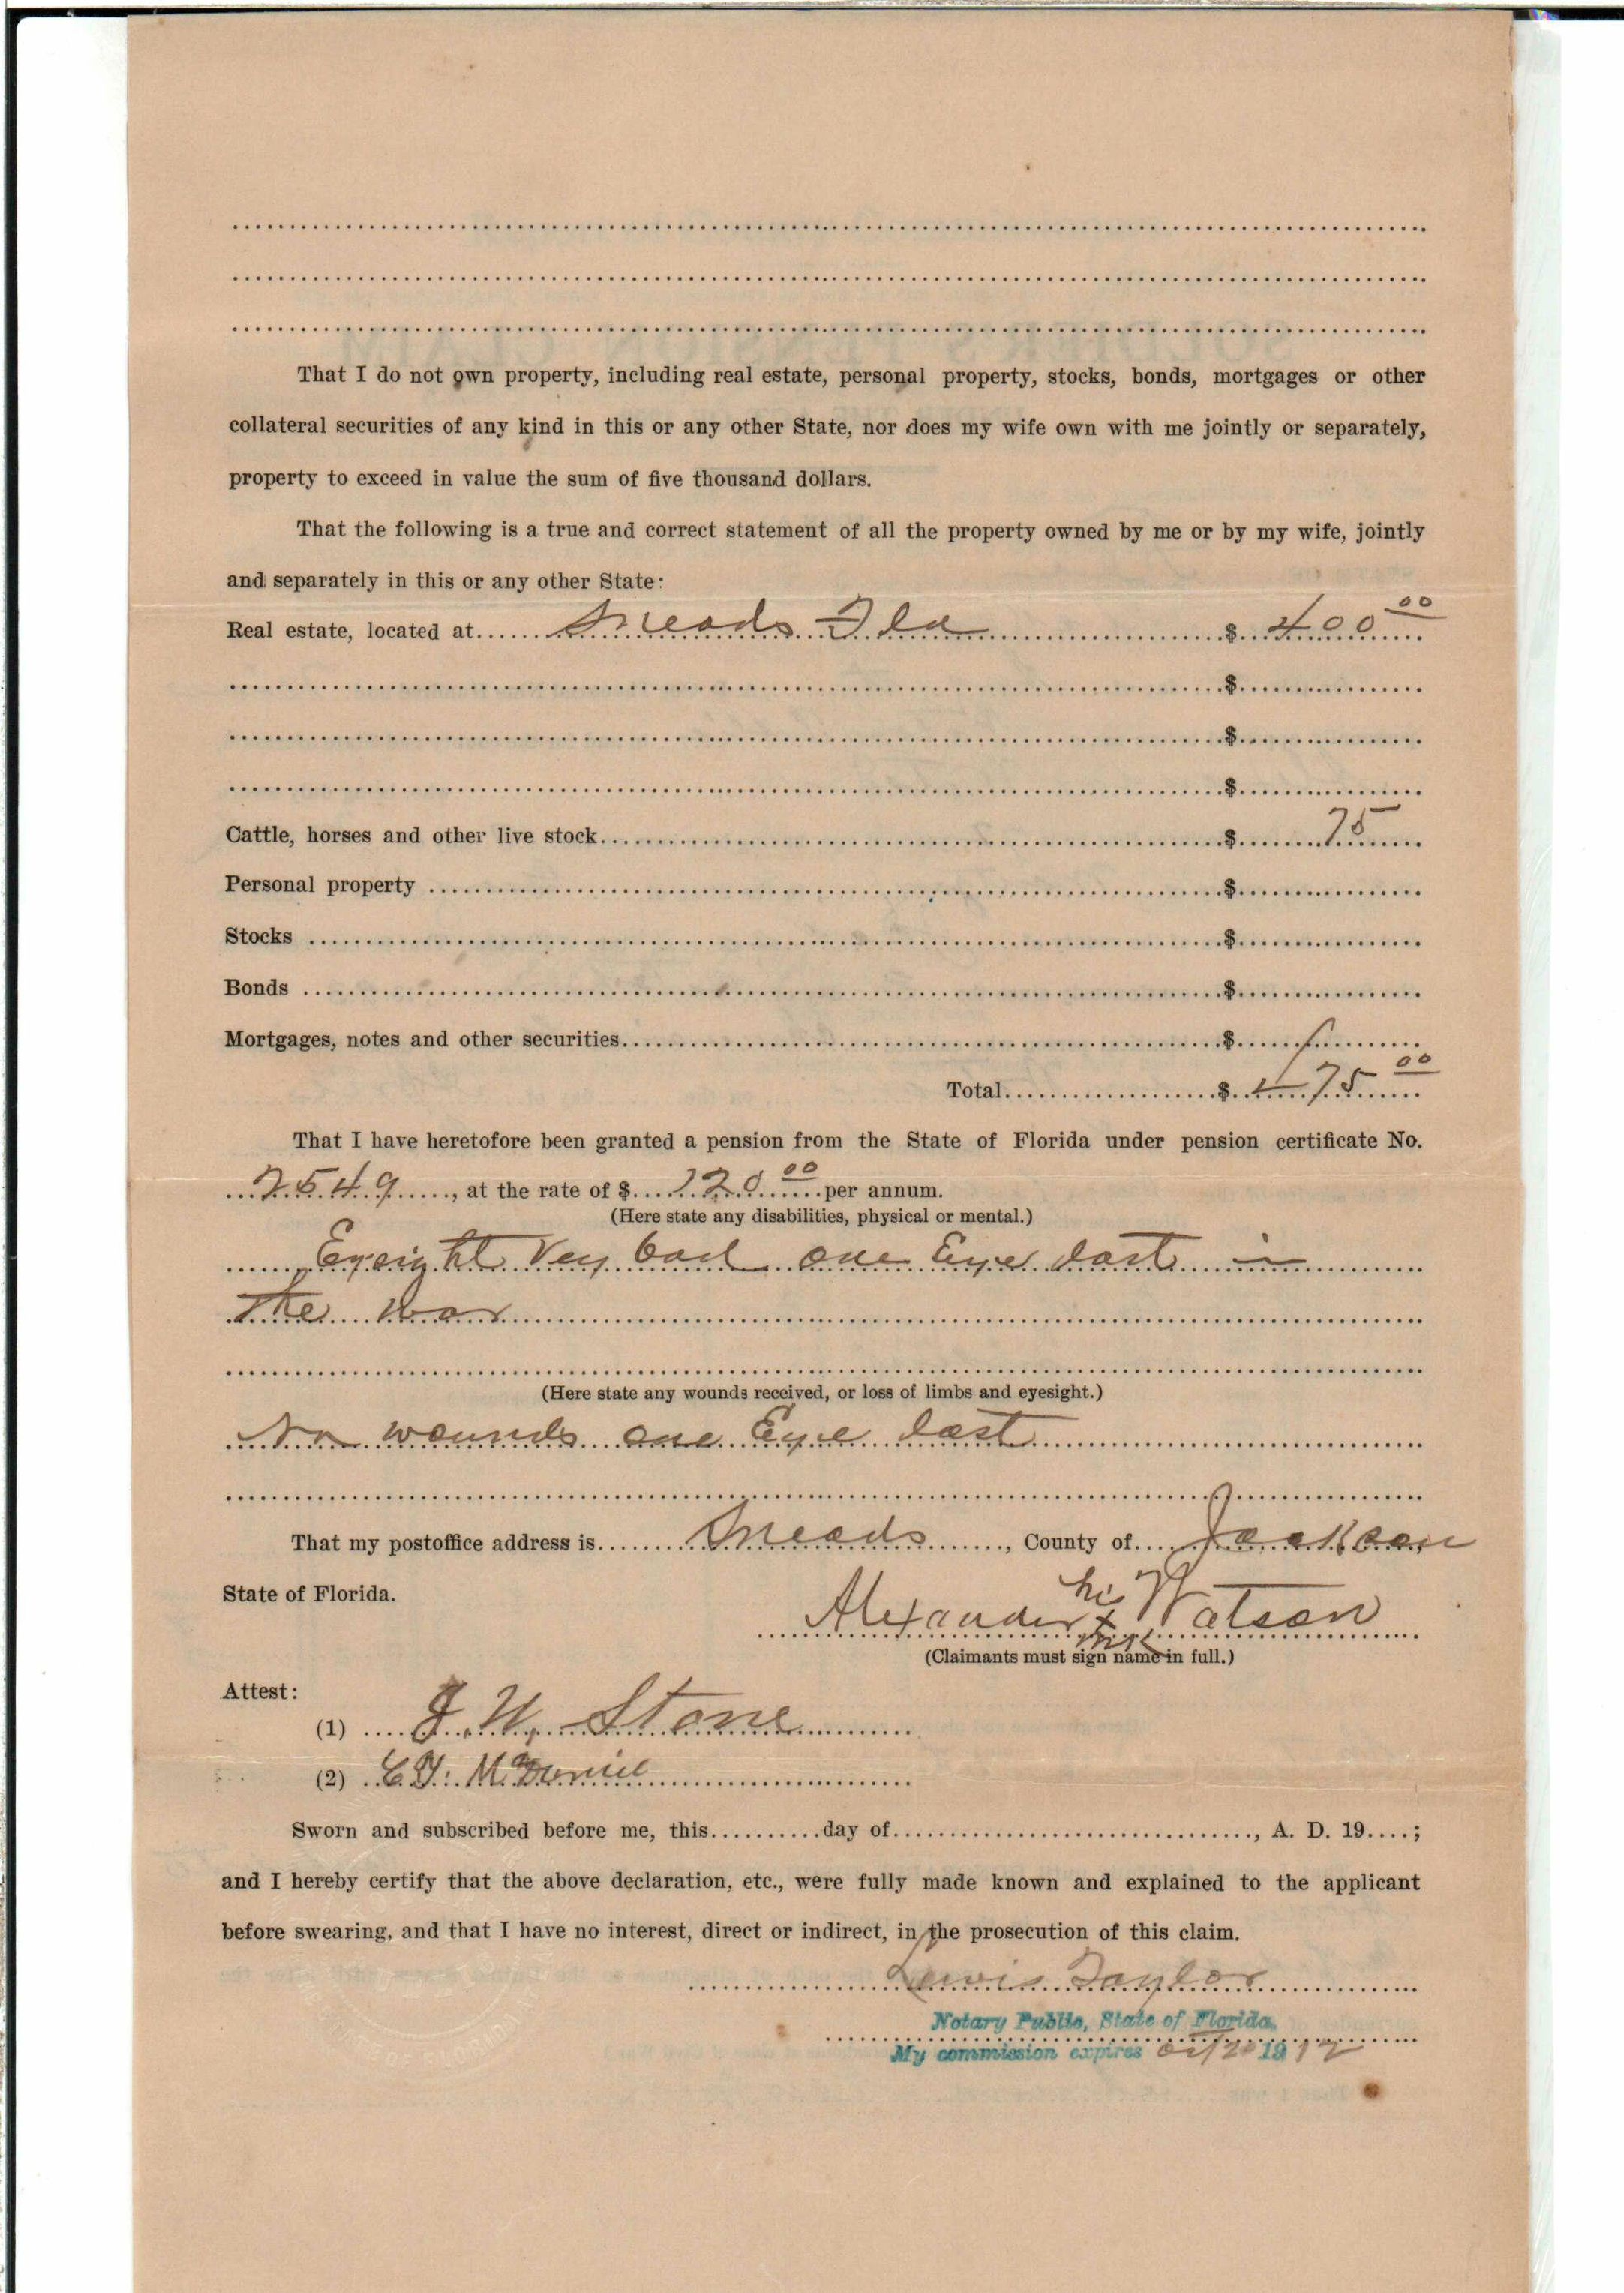 That I do not own property, including real estate, personal property, stocks, bonds, mortgages or other
collateral securities of any kind in this or any other State, nor does my wife own with me jointly or separately,
property to exceed in value the sum of five thousand dollars.
That the following is a true and correct statement of all the property owned by me or by my wife, jointly
and separately in this or any other State:
Real estate, located at Sneads Fla $ 400 00
$
$
$
Cattle, horses and other live stock $ 75
Personal property $
Stocks $
Bonds $
Mortgages, notes and other securities $
Total $ 475 00
That I have heretofore been granted a pension from the State of Florida under pension certificate No.
2549, at the rate of $ 120 00 per annum.
(Here state any disabilities, physical or mental.)
Eyesight Very bad one Eye lost in
the war
(Here state any wounds received, or loss of limbs and eyesight.)
No wounds one Eye lost
That my postoffice address is Sneads, County of Jackson
State of Florida.
Alexander his x mrk Watson
(Claimants must sign name in full.)
Attest:
(1) J. W. Stone
(2)
Sworn and subscribed before me, this day of , A. D. 19 ;
and I hereby certify that the above declaration, etc., were fully made known and explained to the applicant
before swearing, and that I have no interest, direct or indirect, in the prosecution of this claim.
Lewis Taylor
Notary Public, State of Florida,
My commission expires 1912